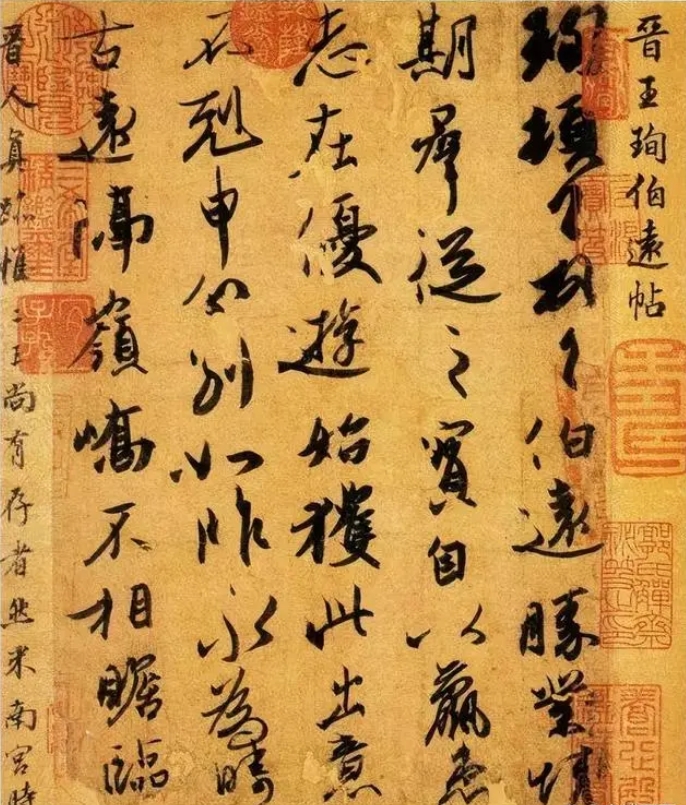 晋王珣伯遠帖
珣頓首頓首伯遠勝業情
期羣從之寶自以羸患
志在優遊始獲此出意
不剋申分別如昨永為疇
古遠隔嶺嶠不相瞻臨
晋人真跡惟二王尚有存者然米南宮時